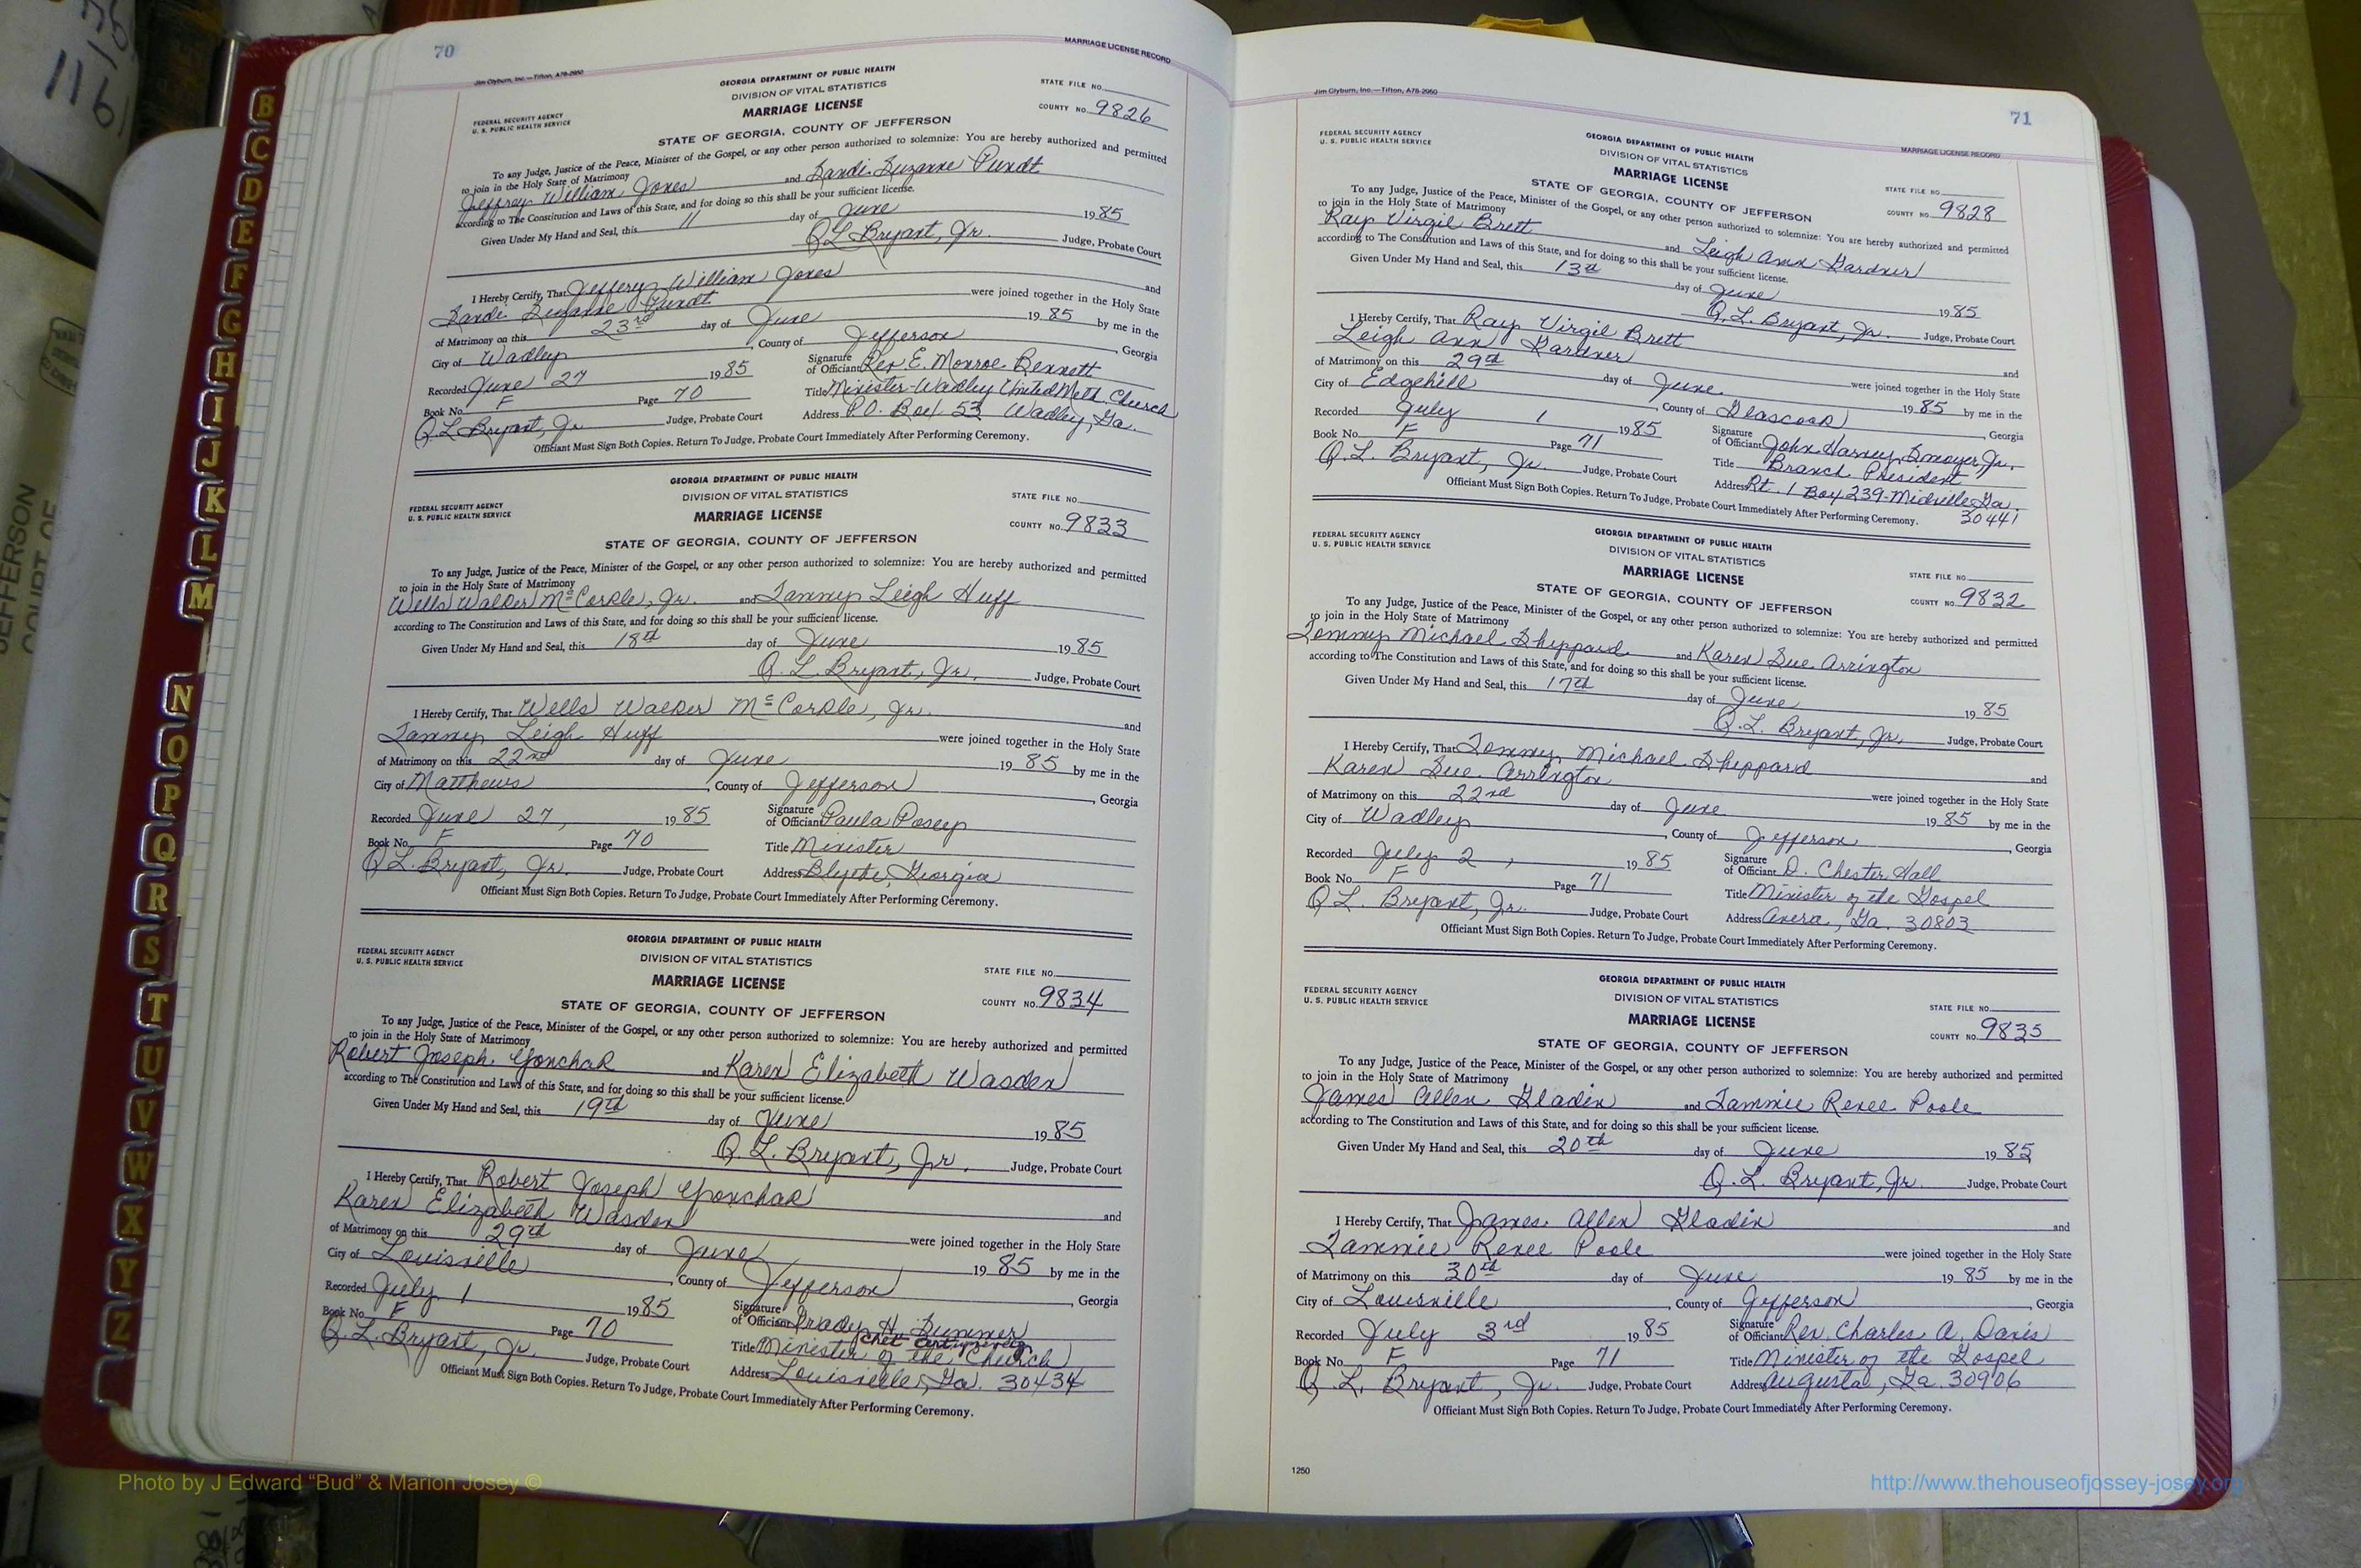 70
Jim Clyburn, Inc.—Tifton, A78-2950
MARRIAGE LICENSE RECORD
GEORGIA DEPARTMENT OF PUBLIC HEALTH
DIVISION OF VITAL STATISTICS
MARRIAGE LICENSE
FEDERAL SECURITY AGENCY
U. S. PUBLIC HEALTH SERVICE
STATE FILE NO.
COUNTY NO. 9826
STATE OF GEORGIA, COUNTY OF JEFFERSON
To any Judge, Justice of the Peace, Minister of the Gospel, or any other person authorized to solemnize: You are hereby authorized and permitted
to join in the Holy State of Matrimony
Jeffrey William Jones and Sandi Suzanne Pundt
according to The Constitution and Laws of this State, and for doing so this shall be your sufficient license.
Given Under My Hand and Seal, this 11 day of June 1985
Q L Bryant, Jr. Judge, Probate Court
I Hereby Certify, That Jeffery William Jones and
Sandi Suzanne Pundt were joined together in the Holy State
of Matrimony on this 23rd day of June 1985 by me in the
City of Wadley, County of Jefferson, Georgia
Recorded June 27 1985 Signature of Official Rev. E. Monroe Bennett
Book No. F Page 70 Title Minister-Wadley United Meth. Church
Q L Bryant, Jr. Judge, Probate Court Address P.O. Box 53 Wadley, Ga.
Officiant Must Sign Both Copies. Return To Judge, Probate Court Immediately After Performing Ceremony.
GEORGIA DEPARTMENT OF PUBLIC HEALTH
DIVISION OF VITAL STATISTICS
MARRIAGE LICENSE
FEDERAL SECURITY AGENCY
U. S. PUBLIC HEALTH SERVICE
STATE FILE NO.
COUNTY NO. 9833
STATE OF GEORGIA, COUNTY OF JEFFERSON
To any Judge, Justice of the Peace, Minister of the Gospel, or any other person authorized to solemnize: You are hereby authorized and permitted
to join in the Holy State of Matrimony
Wells Walker McCorkle, Jr. and Tanny Leigh Huff
according to The Constitution and Laws of this State, and for doing so this shall be your sufficient license.
Given Under My Hand and Seal, this 18th day of June 1985
Q. L. Bryant, Jr. Judge, Probate Court
I Hereby Certify, That Wells Walker McCorkle, Jr. and
Tanny Leigh Huff were joined together in the Holy State
of Matrimony on this 22nd day of June 1985 by me in the
City of Matthews, County of Jefferson, Georgia
Recorded June 27, 1985 Signature of Officiant Paula Posey
Book No. F Page 70 Title Minister
Q L. Bryant, Jr. Judge, Probate Court Address Blythe, Georgia
Officiant Must Sign Both Copies. Return To Judge, Probate Court Immediately After Performing Ceremony.
GEORGIA DEPARTMENT OF PUBLIC HEALTH
DIVISION OF VITAL STATISTICS
MARRIAGE LICENSE
FEDERAL SECURITY AGENCY
U. S. PUBLIC HEALTH SERVICE
STATE FILE NO.
COUNTY NO. 9834
STATE OF GEORGIA, COUNTY OF JEFFERSON
To any Judge, Justice of the Peace, Minister of the Gospel, or any other person authorized to solemnize: You are hereby authorized and permitted
to join in the Holy State of Matrimony
Robert Joseph Gonchar and Karen Elizabeth Wasden
according to The Constitution and Laws of this State, and for doing so this shall be your sufficient license.
Given Under My Hand and Seal, this 19th day of June 1985
Q. L. Bryant, Jr. Judge, Probate Court
I Hereby Certify, That Robert Joseph Gonchar and
Karen Elizabeth Wasden were joined together in the Holy State
of Matrimony on this 29th day of June 1985 by me in the
City of Louisville, County of Jefferson, Georgia
Recorded July 1 1985 Signature of Officiant Grady H. Summer
Book No. F Page 70 Title Minister of the Church
Q. L. Bryant, Jr. Judge, Probate Court Address Louisville, Ga. 30434
Officiant Must Sign Both Copies. Return To Judge, Probate Court Immediately After Performing Ceremony.
71
Jim Clyburn, Inc.—Tifton, A78-2950
MARRIAGE LICENSE RECORD
GEORGIA DEPARTMENT OF PUBLIC HEALTH
DIVISION OF VITAL STATISTICS
MARRIAGE LICENSE
FEDERAL SECURITY AGENCY
U. S. PUBLIC HEALTH SERVICE
STATE FILE NO.
COUNTY NO. 9828
STATE OF GEORGIA, COUNTY OF JEFFERSON
To any Judge, Justice of the Peace, Minister of the Gospel, or any other person authorized to solemnize: You are hereby authorized and permitted
to join in the Holy State of Matrimony
Ray Virgil Brett and Leigh Ann Gardner
according to The Constitution and Laws of this State, and for doing so this shall be your sufficient license.
Given Under My Hand and Seal, this 13th day of June 1985
Q. L. Bryant, Jr. Judge, Probate Court
I Hereby Certify, That Ray Virgil Brett and
Leigh Ann Gardner were joined together in the Holy State
of Matrimony on this 29th day of June 1985 by me in the
City of Edgehill, County of Glascock, Georgia
Recorded July 1 1985 Signature of Officiant John Harvey Smoyer, Jr.
Book No. F Page 71 Title Branch President
Q. L. Bryant, Jr. Judge, Probate Court Address Rt. 1 Box 239-Midville, Ga. 30441
Officiant Must Sign Both Copies. Return To Judge, Probate Court Immediately After Performing Ceremony.
GEORGIA DEPARTMENT OF PUBLIC HEALTH
DIVISION OF VITAL STATISTICS
MARRIAGE LICENSE
FEDERAL SECURITY AGENCY
U. S. PUBLIC HEALTH SERVICE
STATE FILE NO.
COUNTY NO. 9832
STATE OF GEORGIA, COUNTY OF JEFFERSON
To any Judge, Justice of the Peace, Minister of the Gospel, or any other person authorized to solemnize: You are hereby authorized and permitted
to join in the Holy State of Matrimony
Tommy Michael Sheppard and Karen Sue Arrington
according to The Constitution and Laws of this State, and for doing so this shall be your sufficient license.
Given Under My Hand and Seal, this 17th day of June 1985
Q. L. Bryant, Jr. Judge, Probate Court
I Hereby Certify, That Tommy Michael Sheppard and
Karen Sue Arrington were joined together in the Holy State
of Matrimony on this 22nd day of June 1985 by me in the
City of Wadley, County of Jefferson, Georgia
Recorded July 2, 1985 Signature of Officiant D. Chester Hall
Book No. F Page 71 Title Minister of the Gospel
Q L. Bryant, Jr. Judge, Probate Court Address Avera, Ga. 30803
Officiant Must Sign Both Copies. Return To Judge, Probate Court Immediately After Performing Ceremony.
GEORGIA DEPARTMENT OF PUBLIC HEALTH
DIVISION OF VITAL STATISTICS
MARRIAGE LICENSE
FEDERAL SECURITY AGENCY
U. S. PUBLIC HEALTH SERVICE
STATE FILE NO.
COUNTY NO. 9835
STATE OF GEORGIA, COUNTY OF JEFFERSON
To any Judge, Justice of the Peace, Minister of the Gospel, or any other person authorized to solemnize: You are hereby authorized and permitted
to join in the Holy State of Matrimony
James Allen Gladin and Tammie Renee Poole
according to The Constitution and Laws of this State, and for doing so this shall be your sufficient license.
Given Under My Hand and Seal, this 20th day of June 1985
Q. L. Bryant, Jr. Judge, Probate Court
I Hereby Certify, That James Allen Gladin and
Tammie Renee Poole were joined together in the Holy State
of Matrimony on this 30th day of June 1985 by me in the
City of Louisville, County of Jefferson, Georgia
Recorded July 3rd 1985 Signature of Officiant Rev. Charles A. Davis
Book No. F Page 71 Title Minister of the Gospel
Q. L. Bryant, Jr. Judge, Probate Court Address Augusta, Ga. 30906
Officiant Must Sign Both Copies. Return To Judge, Probate Court Immediately After Performing Ceremony.
1250
B
C
D
E
F
G
H
I
J
K
L
M
N
O
P
Q
R
S
T
U
V
W
X
Y
Z
Photo by J Edward “Bud” & Marion Josey ©
http://www.thehouseofjossey-josey.org